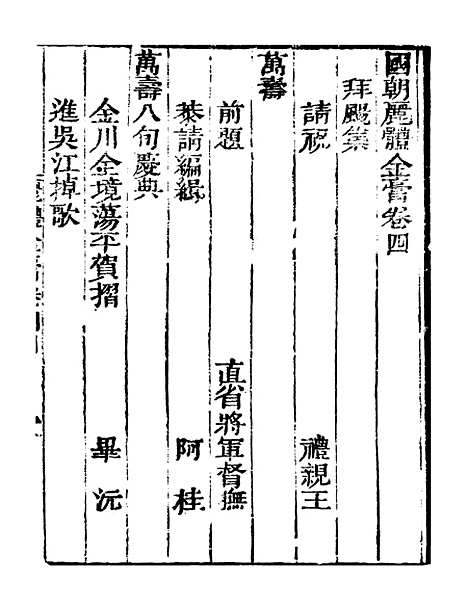 國朝麗體金膏卷四
拜颺集
請祝 禮親王
萬壽
前題 直省將軍督撫
恭請編緝 阿桂
萬壽八旬慶典
金川全境蕩平賀摺 畢沅
進吳江掉歌